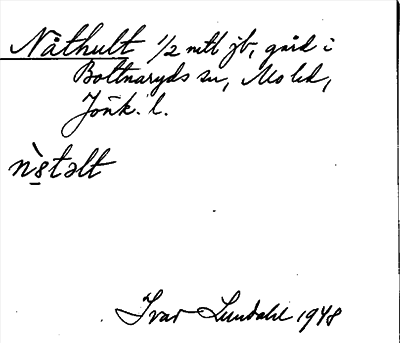 Nåthult 1/2 mtl jb, gård i
Bolmaryds sn, Mo hd,
Jönk. l.
Ivar Lundahl 1948